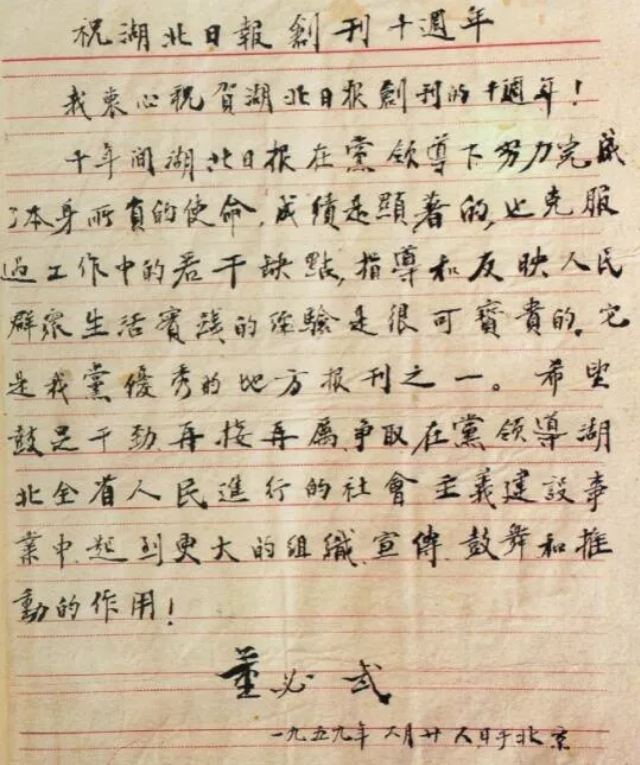 祝湖北日報創刊十週年
我衷心祝賀湖北日报創刊的十週年！
十年間湖北日报在黨領導下努力完成
了本身所負的使命,成績是顯著的,也克服
過工作中的若干缺點,指導和反映人民
群衆生活實踐的經驗是很可寳貴的。它
是我黨優秀的地方报刊之一。希望
鼓足干劲,再接再厲,争取在黨領導湖
北全省人民進行的社會主義建設事
業中,起到更大的組織、宣傳、鼓舞和推
動的作用！
董必武
一九五九年六月廿八日于北京